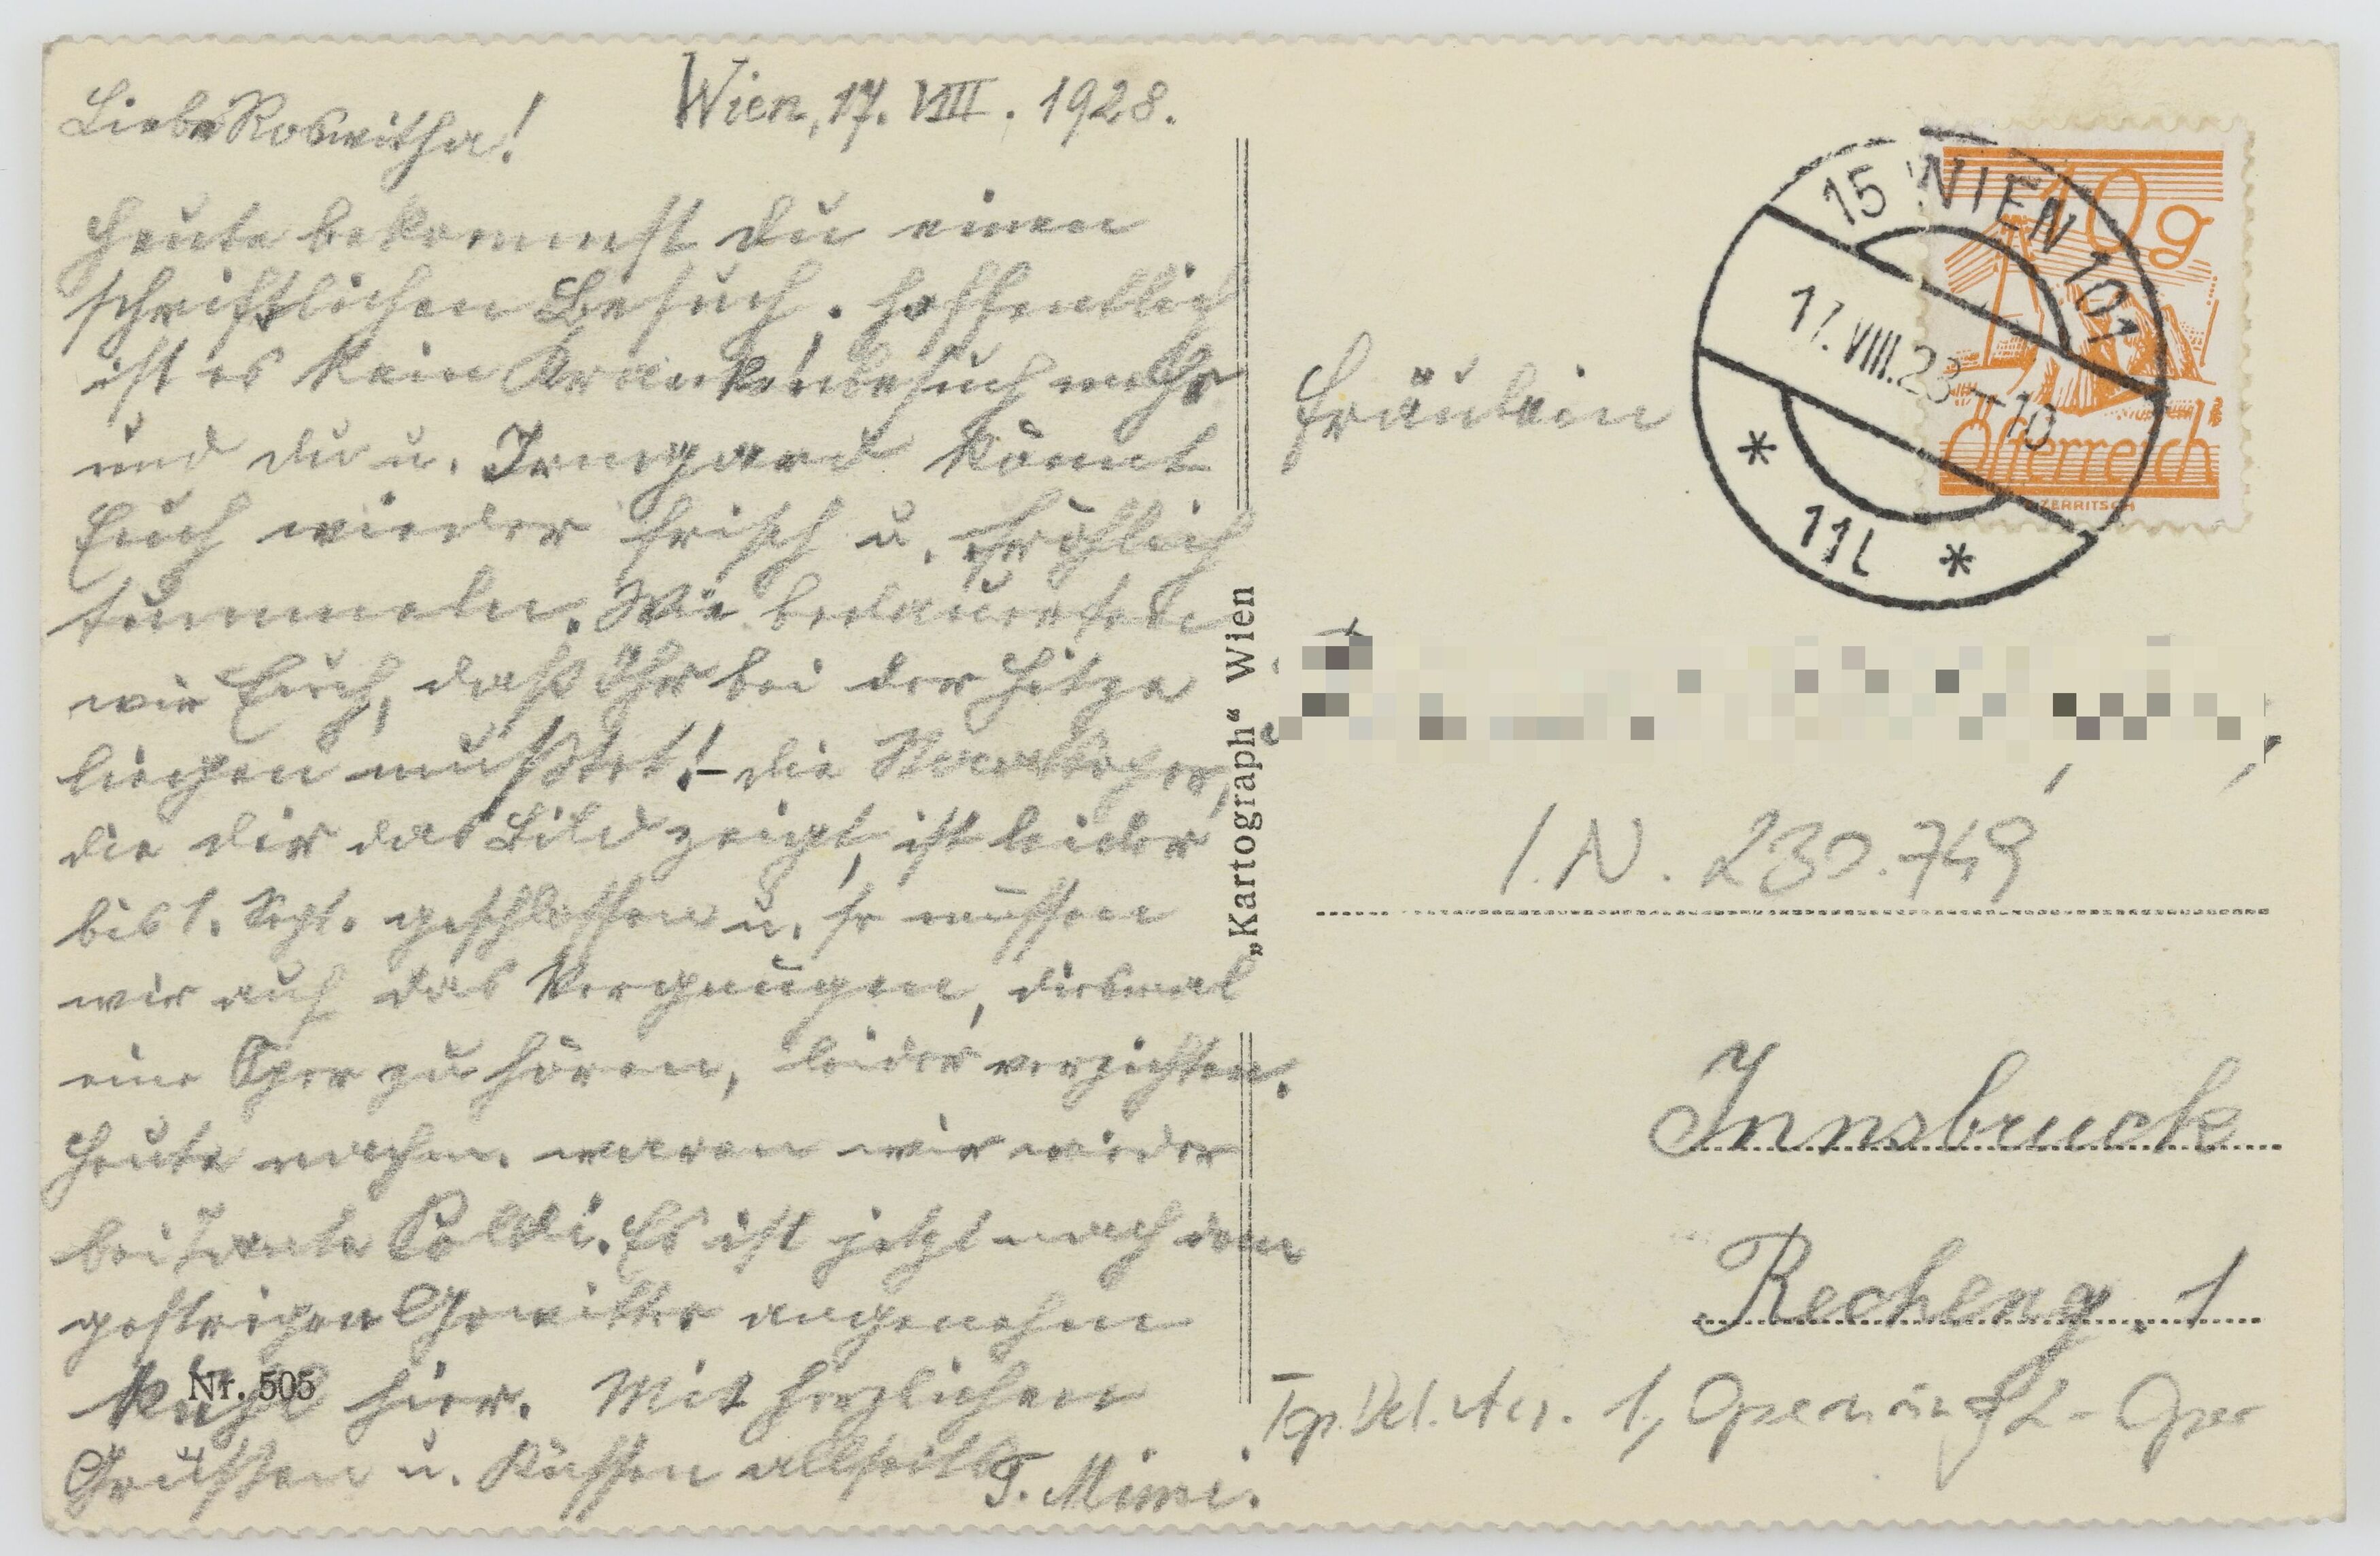 Wien, 17. VIII. 1928.
Liebe Roswitha!
Heute bekommst du einen
schriftlichen Besuch. Hoffentlich
ist es kein Krankenbesuch mehr
und du u. Irmgard könnt
Euch wieder frisch u. fröhlich
tummeln. Wie bedauerten
wir Euch, daß Ihr bei der Hitze
liegen mußtet! – die Staatsoper,
die dir das Bild zeigt, ist leider
bis 1. Sept. geschlossen u. so müssen
wir auf das Vergnügen, diesmal
eine Oper zu hören, leider verzichten.
Heute nachm. waren wir wieder
bei Tante Poldi. Es ist jetzt nach dem
gestrigen Gewitter angenehm
kühl hier. Mit herzlichen
Grüßen u. Küssen allseits
T. Mimi.
Nr. 505
„Kartograph“ Wien
15 WIEN 101
17.VIII.28-10
* 11L *
10g
Österreich
ZERRITSCH
Fräulein
I.N. 230.749
Innsbruck
Recheng. 1
1., Opernring 2 - Oper